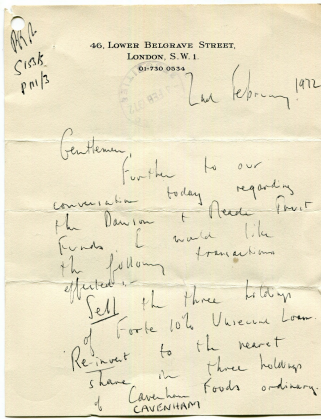 46, LOWER BELGRAVE STREET,
LONDON, S.W.1.
01-730 0534
2nd February, 1972
Gentlemen,
Further to our
conversation today regarding
the Dawson & Meade Trust
Funds I would like
the following transactions
effected :-
Sell the three holdings
of Forte 10% Unsecure Loan.
Re-invest to the nearest
share in three holdings
of Cavenham Foods ordinary.
CAVENHAM